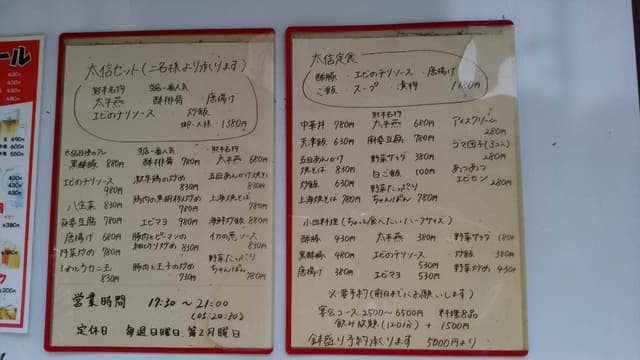 太信セット(二名様より承ります)
熊本名物 当店一番人気
太平燕 酢排骨 唐揚げ
エビのチリソース 炒飯
御一人様 1580円
黒酢豚 880円
当店一番人気
酢排骨 780円
熊本名物
太平燕 680円
エビのチリソース 980円
830円
五目あんかけ焼そば 830円
八宝菜 830円
830円
上海焼そば 780円
麻婆豆腐 780円
エビマヨ 980円
海鮮炒飯 880円
唐揚げ 680円
豚肉とピーマンの細切り炒め 830円
イカの墨ソース 830円
野菜炒め 780円
豚肉と玉子の炒め 730円
野菜たっぷりちゃんぽん 780円
830円
営業時間 17:30~21:00
(OS.20:30)
定休日 毎週日曜日.第2月曜日
太信定食
酢豚 ・エビのチリソース ・唐揚げ
ご飯 スープ 漬物
中華丼 780円
熊本名物
太平燕 680円
アイスクリーム 280円
天津飯 630円
麻婆豆腐 780円
ゴマ団子(3コ入) 280円
五目あんかけ焼そば 830円
野菜サラダ 380円
炒飯 630円
白ご飯 100円
あつあつエビセン 280円
上海焼そば 780円
野菜たっぷりちゃんぽん 780円
小皿料理(ちょっと食べたいハーフサイズ)
酢豚 430円 太平燕 380円 野菜サラダ 180円
黒酢豚 480円 エビのチリソース 530円 炒飯 430円
唐揚げ 380円 エビマヨ 530円 野菜炒め 430円
※要予約(前日までにお願いします)
宴会コース 2500~6500円 料理8品
飲み放題(120分) + 1500円
鉢盛り予約承ります 5000円より